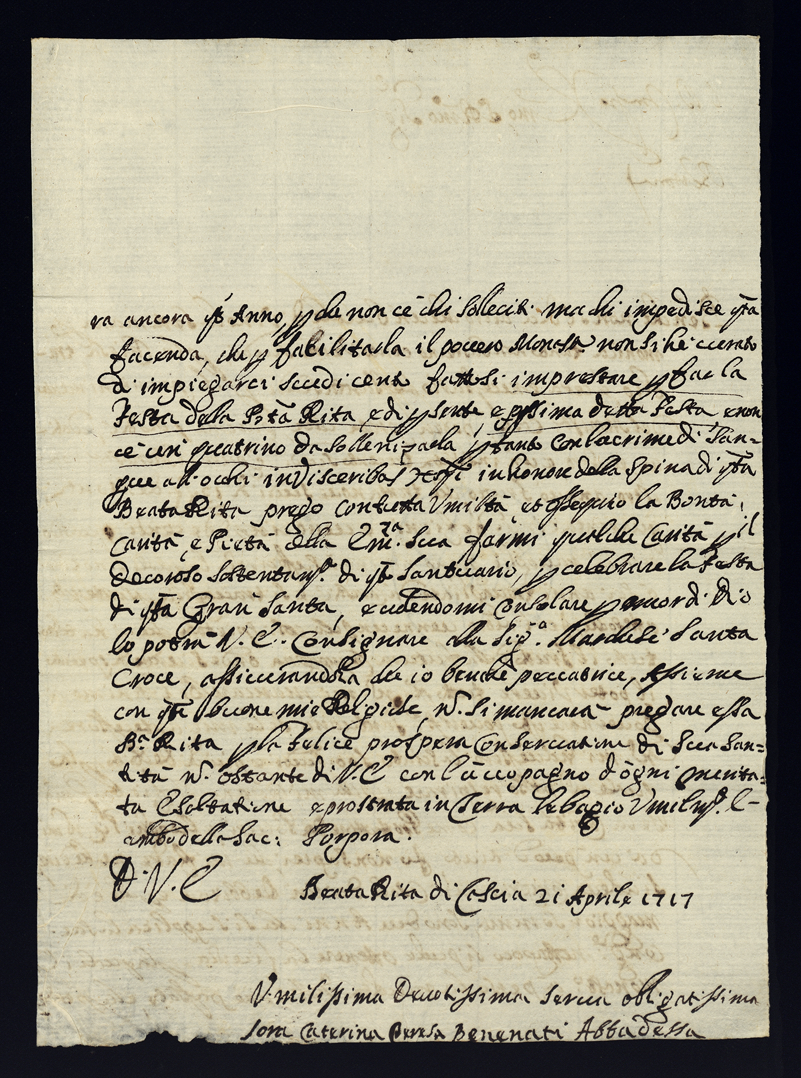 ra ancora qsto Anno, p che non c'è chi solleciti ma chi impedisce qsta
facenda, che p fabilitarla il povero Monastr. non si hè curato
di impiegarci scudi cento fattosi imprestare p far la
Festa dela Bta Rita, e di psente, e pssima detta Festa e non
c'è un quatrino da sollenizarla, ptanto con lacrime di San-
gue all'occhi in honore della Spina di qsta
Beata Rita prego con tutta Umiltà et ossequio la Bontà,
Carità, e Pietà della Emza. Sua farmi qualche Carità p il
decoroso sostentamto. di qsto Santuario, p celebrare la Festa
di qsta Gran Santa, e volendomi consolare p amor di Dio
lo potrà V. E. Consignare alla Siga. Marchesi Santa
Croce, assicurandola che io benche peccatrice, assieme
con qste buone mie Religiose, n. si mancarà pregare essa
Ba. Rita p la felice prospera conservatione di Sua San-
tità n. ostante di V. E con l'accopagno d'ogni merita-
ta Esaltatione e prostrata in Terra le bagio Umilmte. il
lembo della Sac: Porpora.
D. V. E
Beata Rita di Cascia 21 Aprile 1717
Umilissima Devotissima Serva obligatissima
Sora Caterina Teresa Benenati Abbadessa